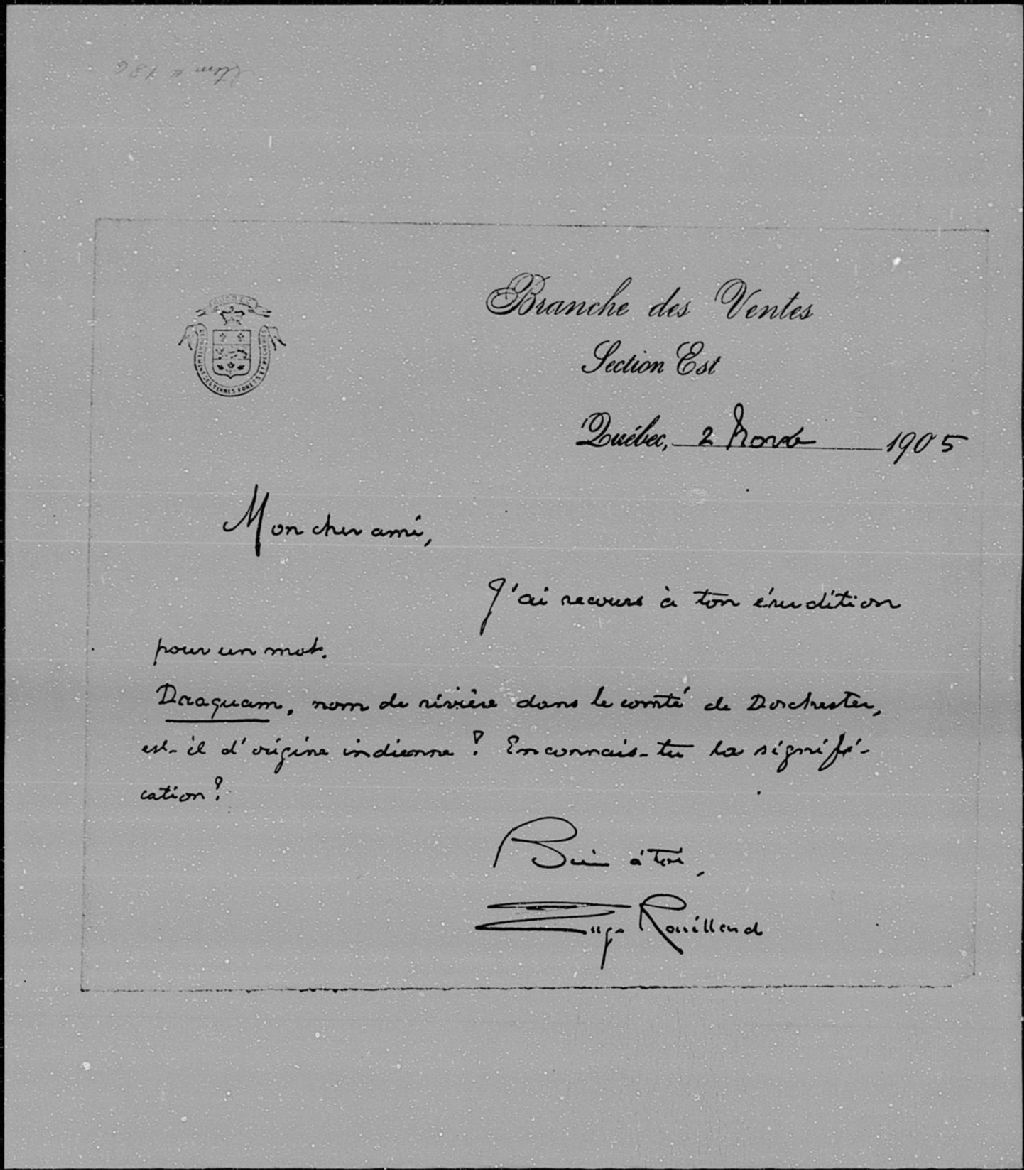 Branche des Ventes
Section Est
Québec, 2 Novb 1905
Mon cher ami,
J'ai recours à ton érudition
pour un mot.
Daaquam, nom de rivière dans le comté de Dorchester,
est-il d'origine indienne ? En connais-tu la signifi-
cation ?
Bien à toi,
Eug. Rouillard